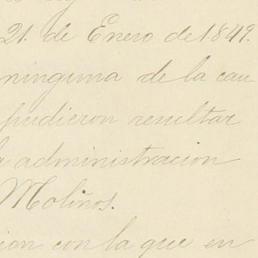 21. de Enero de 1849.
ninguna de la cau
pudieron resultar
a administracion
Molinos.
ion con la que en